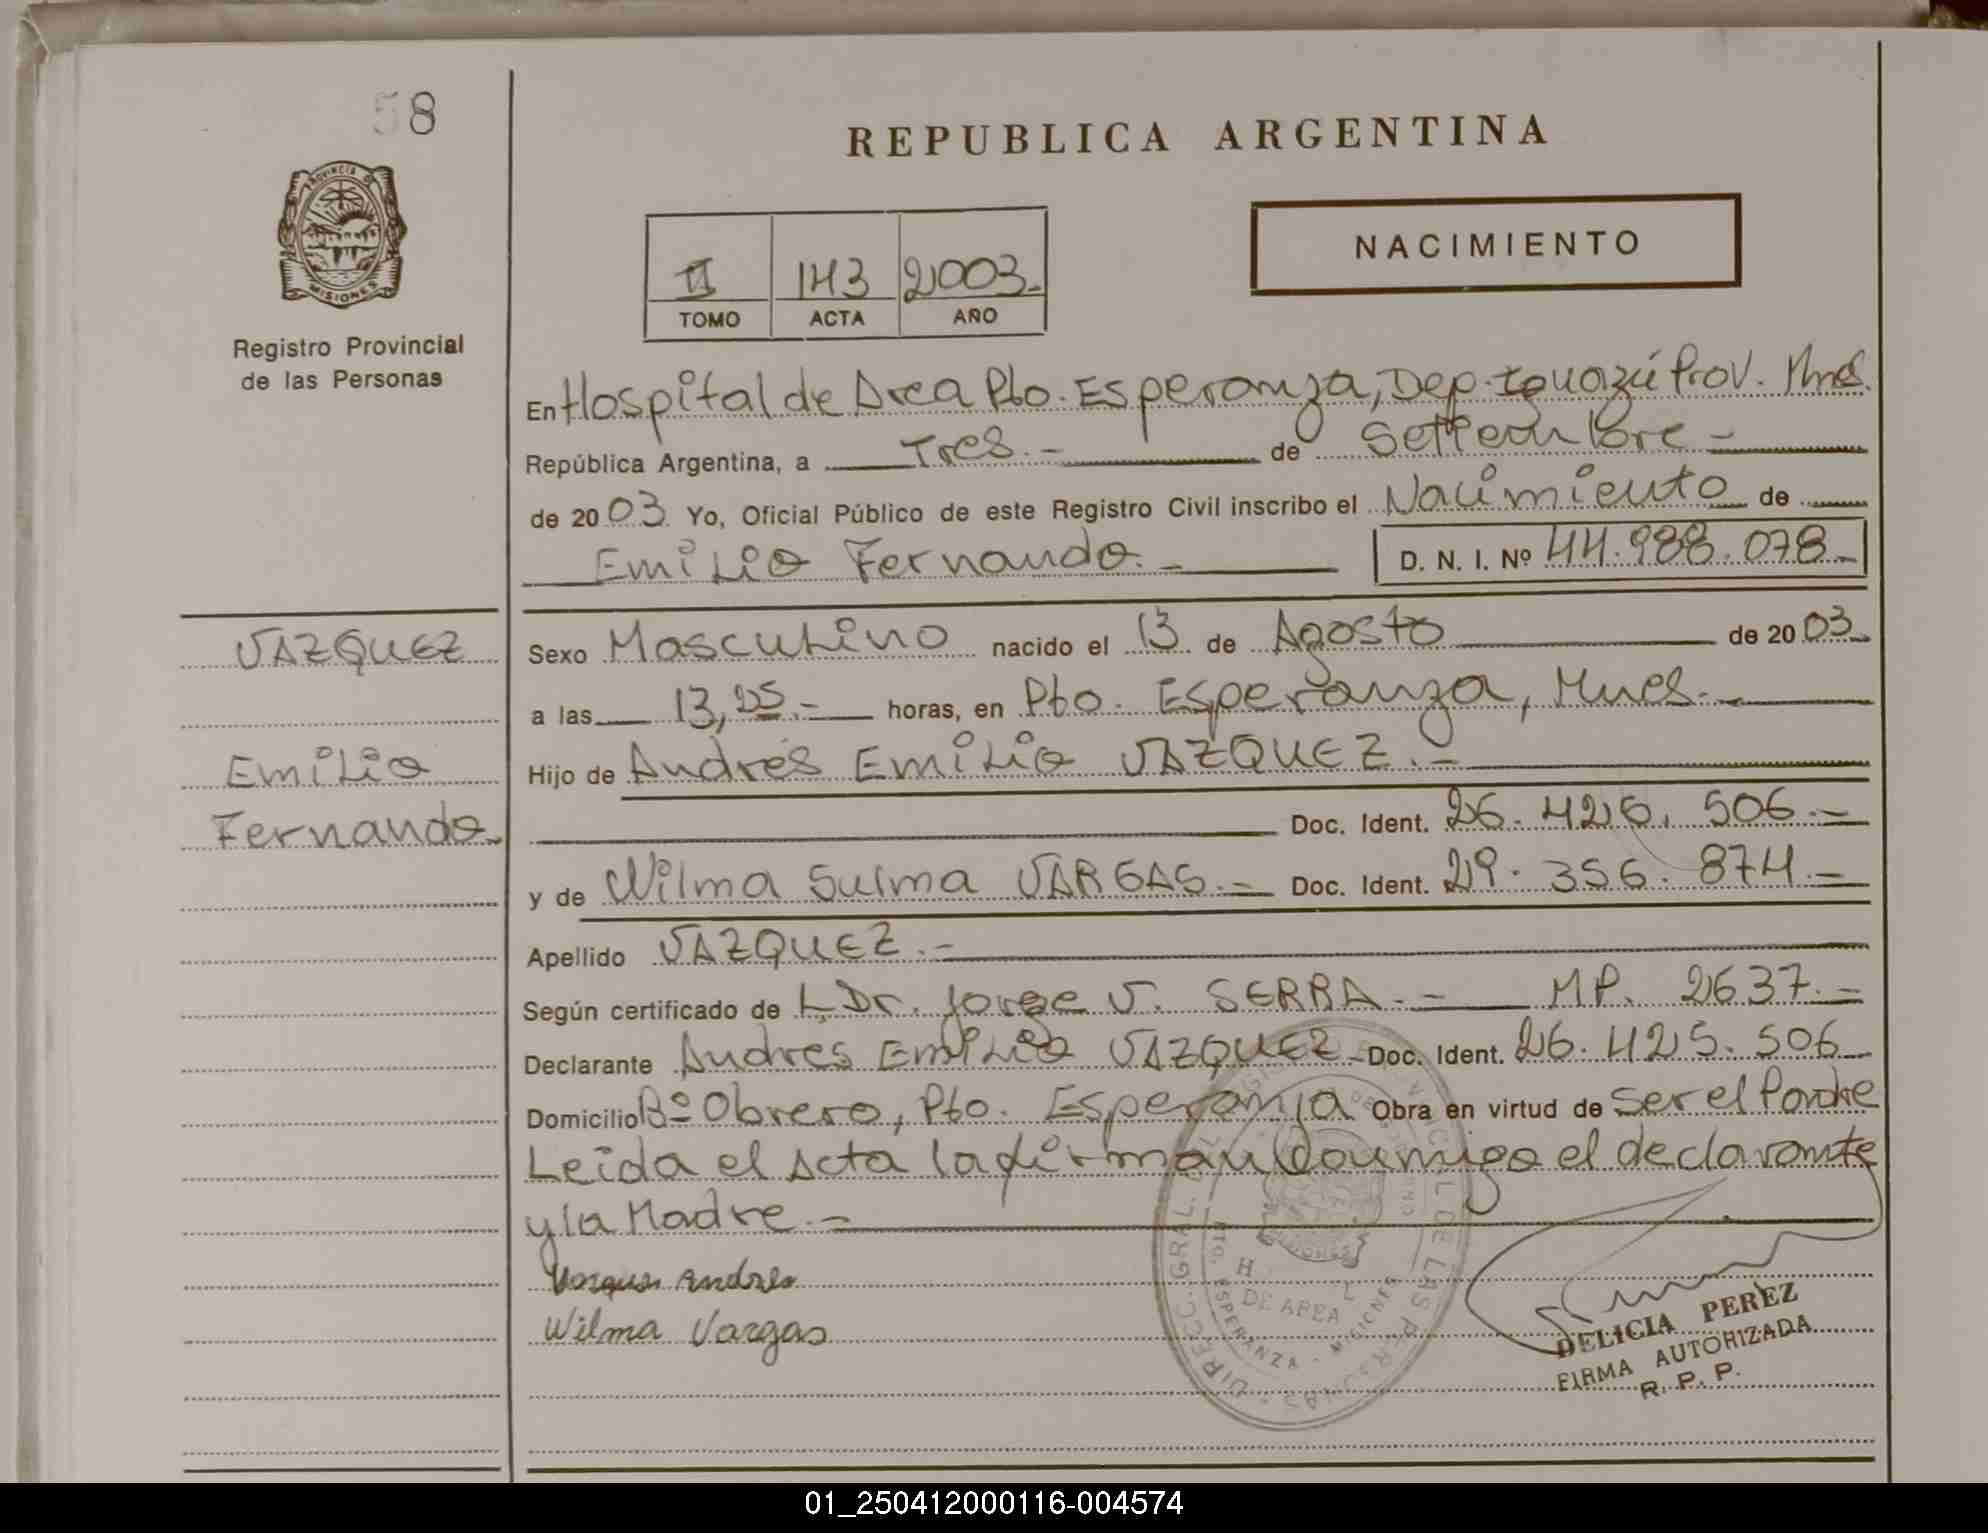 58
REPUBLICA ARGENTINA
PROVINCIA DE
MISIONES
Registro Provincial
de las Personas
II 143 2003.-
TOMO ACTA AÑO
NACIMIENTO
En Hospital de Area Pto. Esperanza, Dep. Iguazú Prov. Mnes.
República Argentina, a Tres.- de Setiembre -
de 2003 Yo, Oficial Público de este Registro Civil inscribo el Nacimiento de
Emilio Fernando.- D. N. I. Nº 44.988.078.-
VAZQUEZ
Emilio
Fernando.
Sexo Masculino nacido el 13 de Agosto de 2003.
a las 13,25.- horas, en Pto. Esperanza, Mnes.-
Hijo de Andrés Emilio VAZQUEZ.-
Doc. Ident. 26.426.506.-
y de Wilma Sulma VARGAS.- Doc. Ident. 29.356.874.-
Apellido VAZQUEZ.-
Según certificado de Dr. Jorge V. SERRA.- MP. 2637.-
Declarante Andres Emilio VAZQUEZ Doc. Ident. 26.425.506
Domicilio Bº Obrero, Pto. Esperanza Obra en virtud de ser el Padre
Leida el Acta la firman Conmigo el declarante
y la Madre.-
Vasques Andres
Wilma Vargas
DIRECC. GRAL. DEL CIVIL DE LAS PERSONAS
H
DE AREA
PTO. ESPERANZA - MISIONES
DELICIA PEREZ
FIRMA AUTORIZADA
R. P. P.
01_250412000116-004574